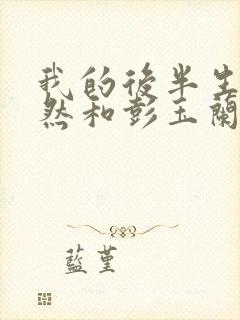 我的後半生
然和彭玉蘭
藍堇